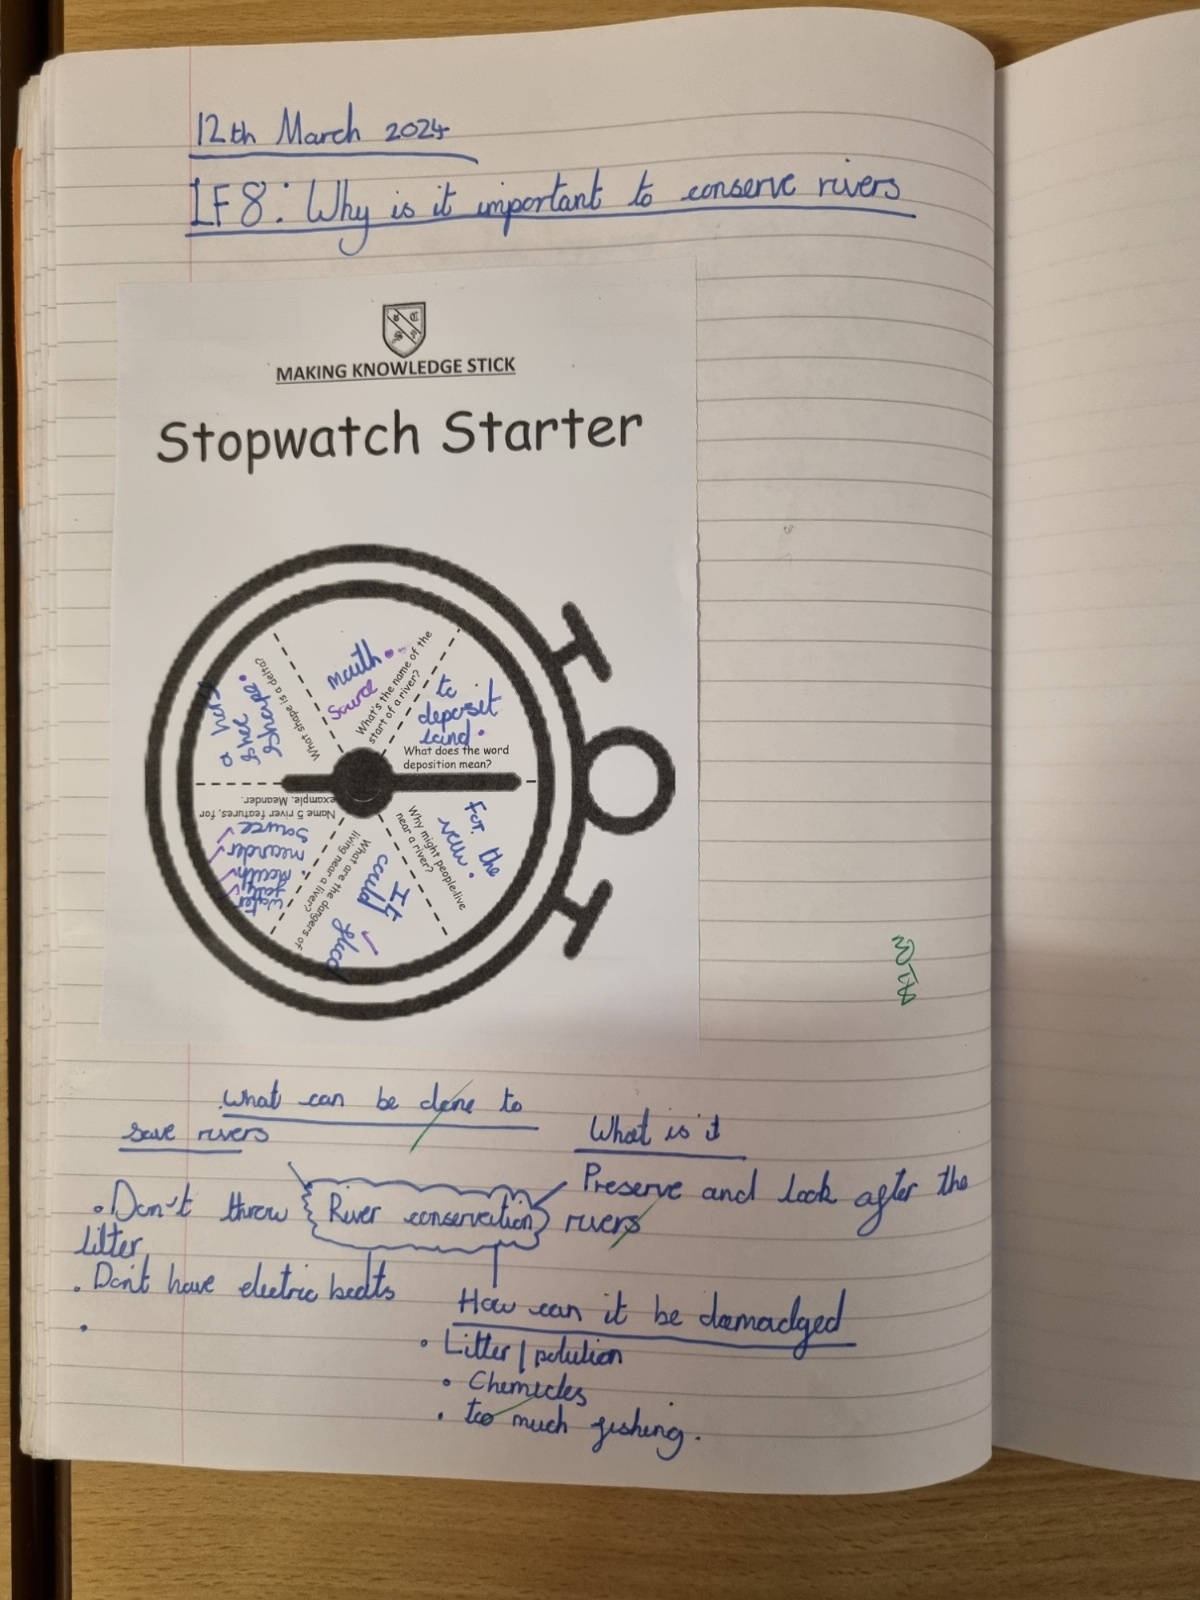 12th March 2024
LF8: Why is it important to conserve rivers
MAKING KNOWLEDGE STICK
Stopwatch Starter
What's the name of the
start of a river?
mouth.
Source
What does the word
deposition mean?
to
deposit
land.
Why might people live
near a river?
For the
view.
What are the dangers of
living near a liver?
It
could
flood
Name 5 river features, for
example, Meander.
Source
meander
mouth
water
fall
What shape is a delta?
a
shape.
What can be done to
save rivers
• Don't throw
litter
• Don't have electric boats
•
River conservation
What is it
Preserve and look after the
rivers
How can it be damadged
• Litter/polution
• Chemicles
• too much fishing.